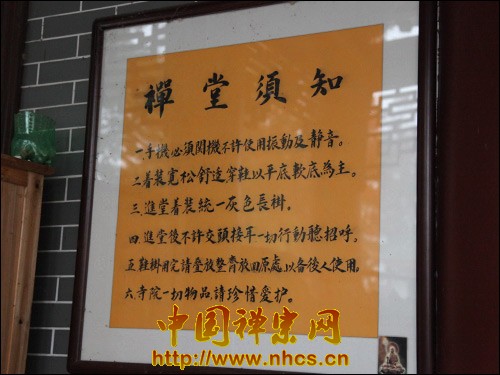 禪堂須知
一.手機必須関機不許使用振動及靜音。
二.着装寬松舒适,穿鞋以平底軟底為主。
三.進堂着装統一灰色長掛。
四.進堂後不許交頭接耳一切行動聽招呼。
五.鞋掛用完請叠放整齊放回原處,以备後人使用。
六.寺院一切物品,請珍惜愛护。
中国禅宗网
http://www.nhcs.cn